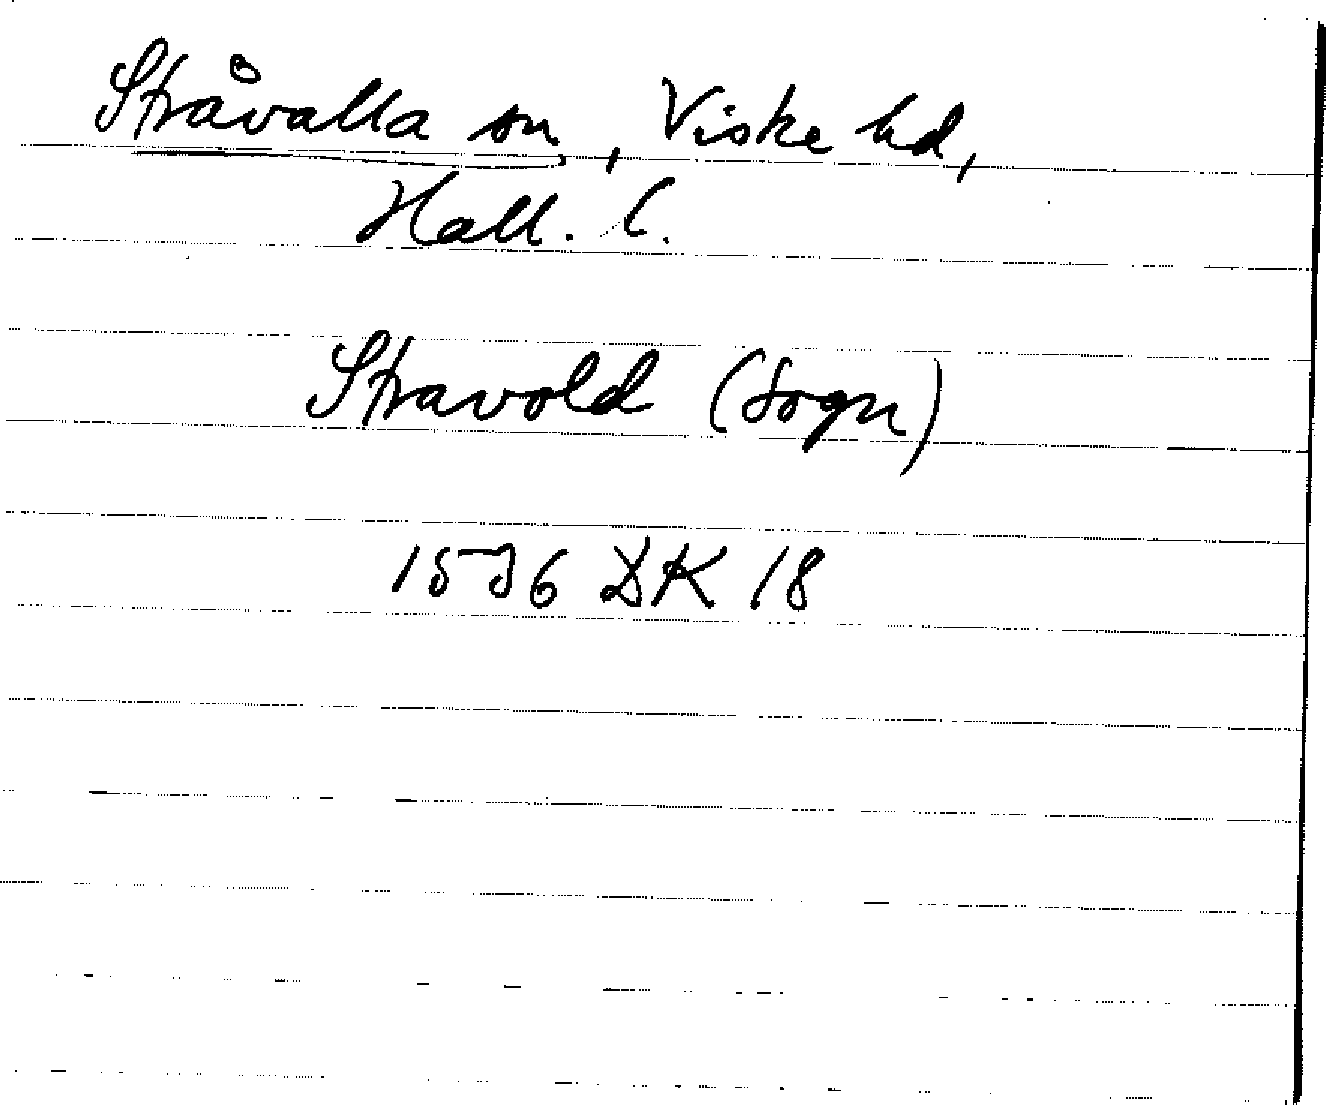 Stråvalla sn, Viske hd,
Hall. l.
Stravold (Sogn)
1536 DK 18